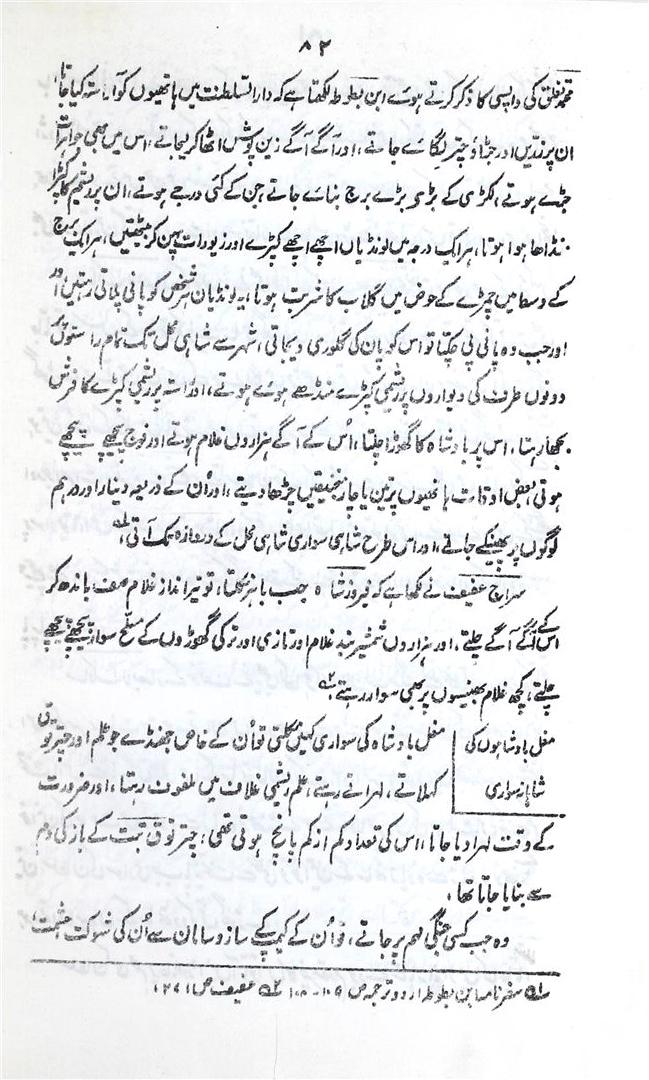 ۸۲
محمد تغلق کی واپسی کا ذکر کرتے ہوئے ابن بطوطہ لکھتا ہے کہ دار السلطنت میں ہاتھیوں کو آراستہ کیا جاتا،
ان پر زریں اور جڑاؤ چتر لگائے جاتے، اور آگے آگے زین پوش اٹھا کر لیجاتے، اس میں بھی جواہرات
جڑے ہوتے، لکڑی کے بڑے بڑے برج بنائے جاتے، جن کے کئی درجے ہوتے، ان پر ریشم کا کپڑا
منڈھا ہوا ہوتا، ہر ایک درجہ میں لونڈیاں اچھے اچھے کپڑے اور زیورات پہن کر بیٹھتیں، ہر ایک برج
کے وسط میں چمڑے کے حوض میں گلاب کا شربت ہوتا، یہ لونڈیاں ہر شخص کو پانی پلاتی رہتیں، اور
اور جب وہ پانی پی چکتا تو اس کو پان کی گلوری دیجاتی، شہر سے شاہی محل تک تمام راستوں پر
دونوں طرف کی دیواروں پر ریشمی کپڑے منڈھے ہوئے ہوتے، اور راستہ پر ریشمی کپڑے کا فرش
بچھا رہتا، اس پر بادشاہ کا گھوڑا چلتا، اس کے آگے ہزاروں غلام ہوتے اور فوج پیچھے پیچھے
ہوتی، بعض اوقات ہاتھیوں پر تین یا چار منجنیقیں چڑھا دیتے، اور اُن کے ذریعہ دینار اور درہم
لوگوں پر پھینکے جاتے، اور اس طرح شاہی سواری شاہی محل کے دروازہ تک آتی،لہ
سراج عفیف نے لکھا ہے کہ فیروز شاہ جب باہر نکلتا، تو تیر انداز غلام صف باندھ کر
اس کے آگے آگے چلتے، اور ہزاروں شمشیر بند غلام اور تازی اور ترکی گھوڑوں کے مسلح سوار پیچھے پیچھے
چلتے، کچھ غلام بھینسوں پر بھی سوار رہتے،۲ہ
مغل بادشاہوں کی شاہانہ سواری
مغل بادشاہ کی سواری کہیں نکلتی تو اُن کے خاص جھنڈے جو علم اور چتر توق
کہلاتے، لہراتے رہتے، علم ریشمی غلاف میں ملفوف رہتا، اور ضرورت
کے وقت لہرا دیا جاتا، اس کی تعداد کم از کم پانچ ہوتی تھی، چتر توق تبت کے یاز کی دم
سے بنایا جاتا تھا،
وہ جب کسی جنگی مہم پر جاتے، تو اُن کے کیمپ کے ساز و سامان سے اُن کی شوکت حشمت،
لہ سفرنامہ ابن بطوطہ اردو ترجمہ ص ۱۰۹-۱۰۸ ۲ہ عفیف ص ۲۷۱،